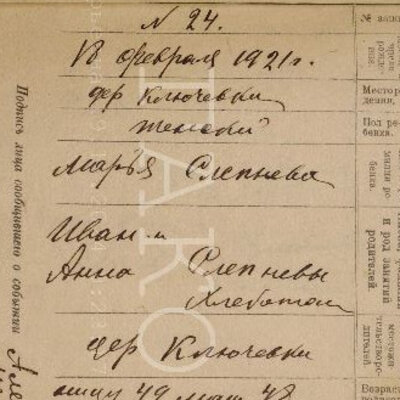 N 24.
18 февраля 1921 г.
дер Ключевки
женский
Марья Слепнева
Иван и
Анна Слепневы
Хлебопаш
дер Ключевки
отцу 49 мат. 48
№ запи
Местор
дения.
Пол ре
бенка.
бенка.
и род занятий
родителей
дителей
Возрас
Подпись лица сообщившего о событии
ГАКО